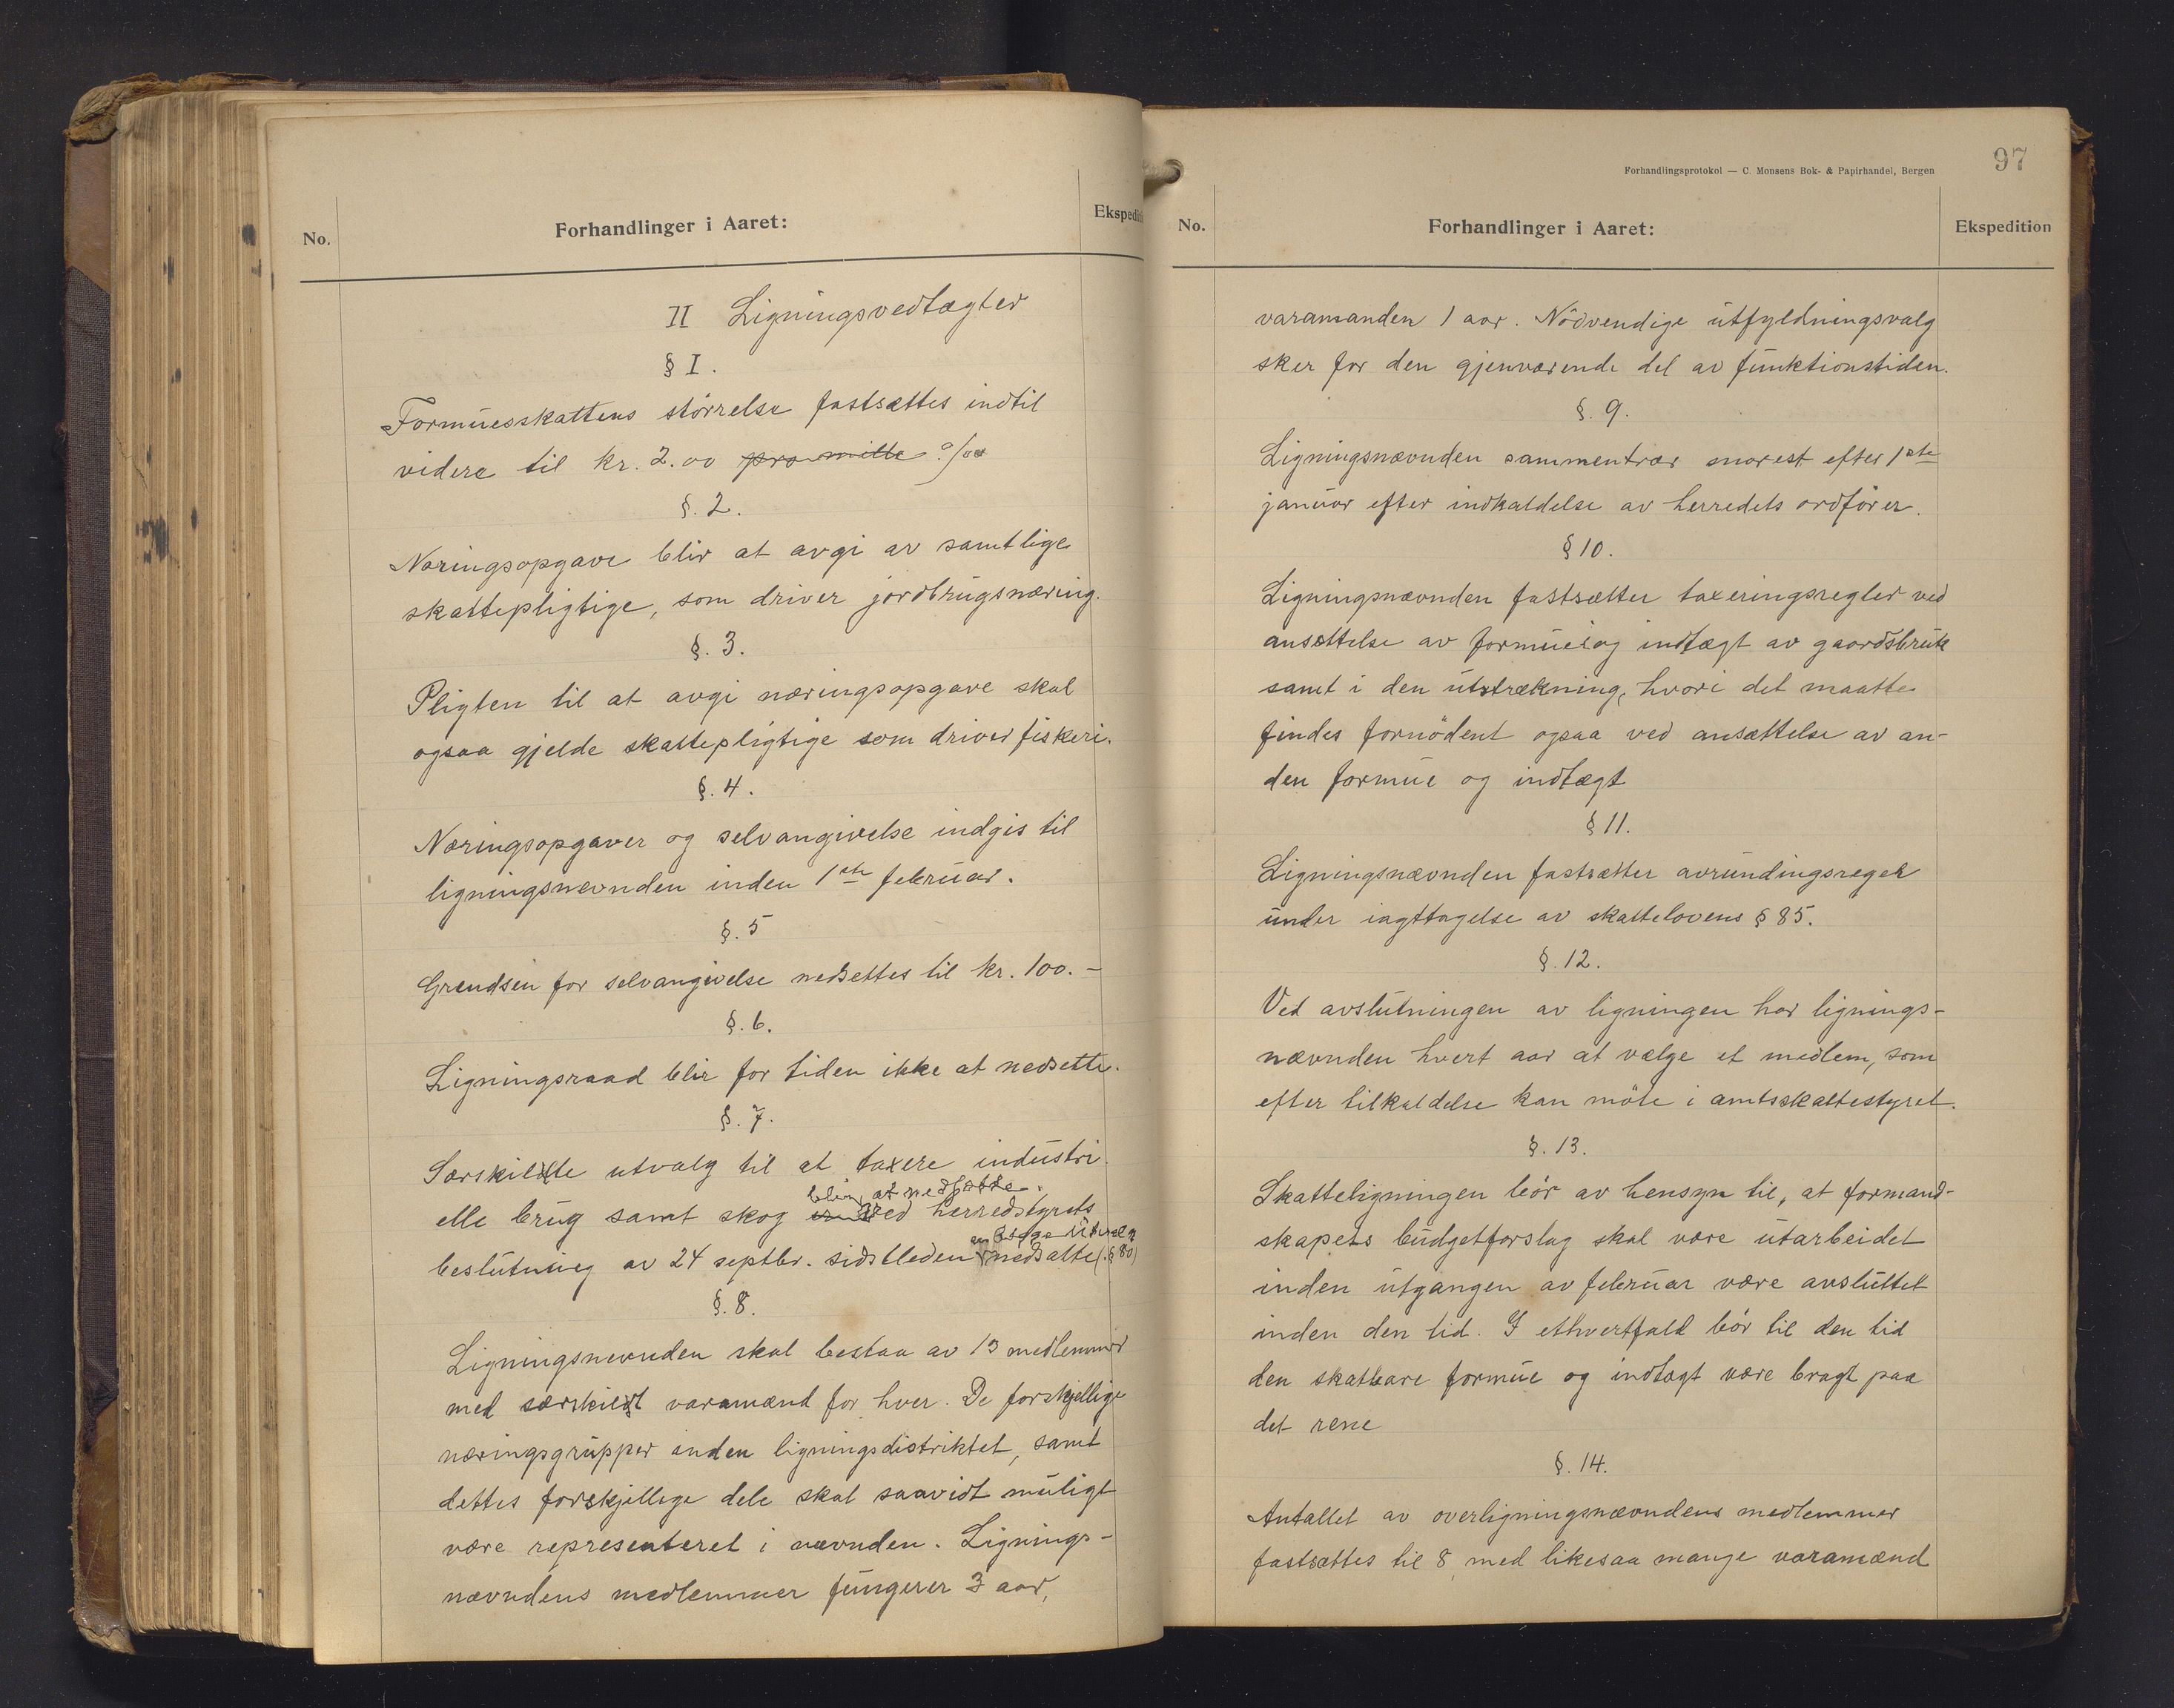 No.
Forhandlinger i Aaret:
Ekspedi
II Ligningsvedtægter
§ I.
Formuesskattens størrelse fastsættes indtil
videre til kr. 2.00 pro mille o/oo
§. 2.
Næringsopgave blir at avgi av samtlige
skattepligtige, som driver jordbrugsnæring.
§. 3.
Pligten til at avgi næringsopgave skal
ogsaa gjelde skattepligtige som driver fiskeri.
§. 4.
Næringsopgaver og selvangivelse indgis til
ligningsnevnden inden 1ste februar.
§. 5
Grændsen for selvangivelse nedsettes til kr. 100.–
§. 6.
Ligningsraad blir for tiden ikke at nedsette.
§. 7.
Særskilte utvalg til at taxere industri
blir at nedsætte.
elle brug samt skog ved herredstyrets
beslutning av 24 septbr. sidstleden nedsatte (§ 80)
§. 8.
Ligningsnevnden skal bestaa av 13 medlemmer
med særskilt varamænd for hver. De forskjellige
næringsgrupper inden ligningsdistriktet, samt
dettes forskjellige dele skal saavidt muligt
være representeret i nævnden. Lignings-
nævndens medlemmer fungerer 3 aar,
Forhandlingsprotokol — C. Monsens Bok- & Papirhandel, Bergen
97
No.
Forhandlinger i Aaret:
Ekspedition
varamanden 1 aar. Nödvendige utfyldningsvalg
sker for den gjenværende del av funktionstiden.
§. 9.
Ligningsnævnden sammentrær snarest efter 1ste
januar efter indkaldelse av herredets ordförer.
§ 10.
Ligningsnævnden fastsætter taxeringsregler ved
ansættelse av formue og indtægt av gaardsbruk
samt i den utstrækning, hvori det maatte
findes fornödent ogsaa ved ansættelse av an-
den formue og indtægt
§ 11.
Ligningsnævnden fastsætter avrundingsregel
under iagttagelse av skattelovens § 85.
§. 12.
Ved avslutningen av ligningen har lignings-
nævnden hvert aar at vælge et medlem, som
efter tilkaldelse kan möte i amtsskattestyret.
§. 13.
Skatteligningen bör av hensyn til, at formand-
skapets budgetforslag skal være utarbeidet
inden utgangen av februar være avsluttet
inden den tid. I ethvertfald bör til den tid
den skatbare formue og indtægt være bragt paa
det rene
§. 14.
Antallet av overligningsnævndens medlemmer
fastsættes til 8, med likesaa mange varamænd